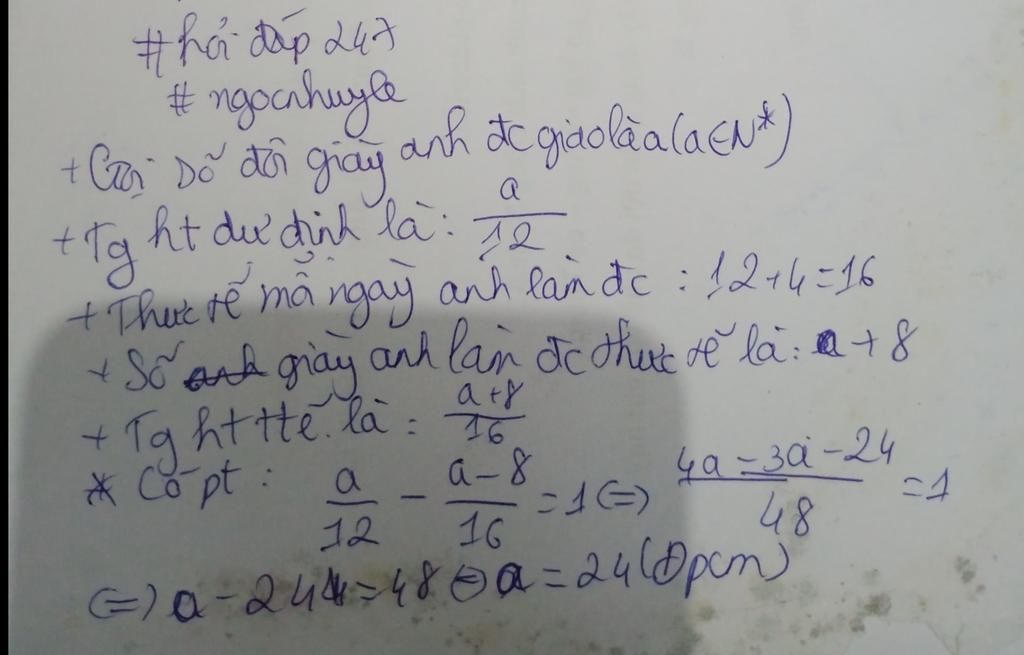 # hỏi đáp 247
# ngocnhuyle
+ Gọi số đôi giày anh đc giao là a (a ∈ N*)
+ Tg ht dự định là: a/12
+ Thực tế mỗi ngày anh làm đc : 12+4=16
+ Số anh giày anh làm đc thực tế là: a + 8
+ Tg ht ttế. là : a+8/16
* Có pt : a/12 - a-8/16 = 1 (=) 4a-3a-24/48 = 1
(=) a - 24 = 48 (=) a = 24 (Đpcm)